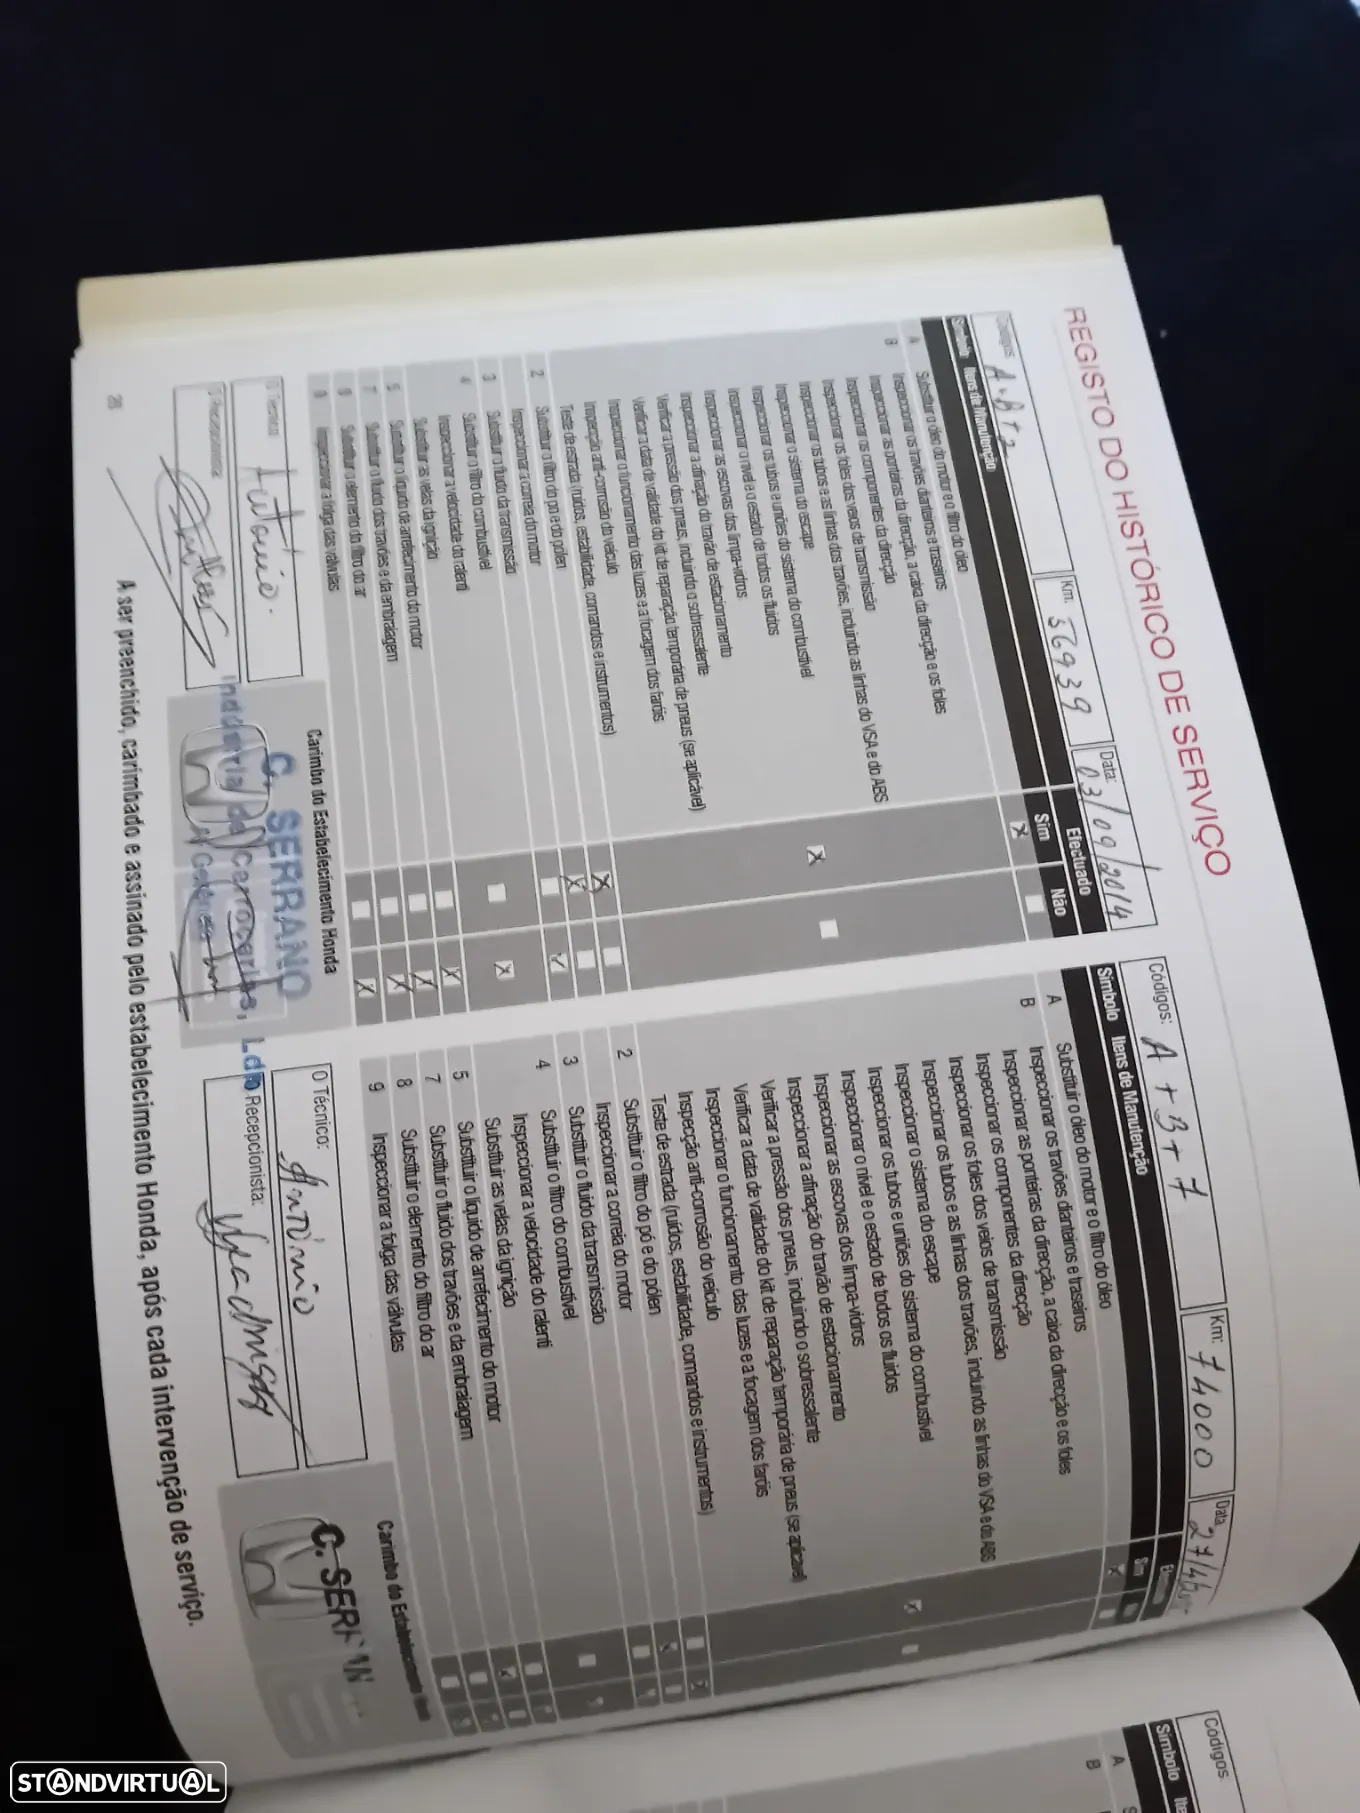 REGISTO DO HISTÓRICO DE SERVIÇO
Códigos: A+B+2
Km: 56939
Data: 03/09/2014
Símbolo Itens de Manutenção
Efectuado
Sim Não
A Substituir o óleo do motor e o filtro do óleo
B Inspeccionar os travões dianteiros e traseiros
Inspeccionar as ponteiras da direcção, a caixa da direcção e os foles
Inspeccionar os componentes da direcção
Inspeccionar os foles dos veios de transmissão
Inspeccionar os tubos e as linhas dos travões, incluindo as linhas do VSA e do ABS
Inspeccionar o sistema do escape
Inspeccionar os tubos e uniões do sistema do combustível
Inspeccionar o nível e o estado de todos os fluidos
Inspeccionar as escovas dos limpa-vidros
Inspeccionar a afinação do travão de estacionamento
Verificar a pressão dos pneus, incluindo o sobressalente
Verificar a data de validade do kit de reparação temporária de pneus (se aplicável)
Inspeccionar o funcionamento das luzes e a focagem dos faróis
Inspecção anti-corrosão do veículo
Teste de estrada (ruídos, estabilidade, comandos e instrumentos)
2 Substituir o filtro do pó e do pólen
Inspeccionar a correia do motor
3 Substituir o fluido da transmissão
4 Substituir o filtro do combustível
Inspeccionar a velocidade do ralenti
Substituir as velas da ignição
5 Substituir o líquido de arrefecimento do motor
7 Substituir o fluido dos travões e da embraiagem
8 Substituir o elemento do filtro do ar
9 Inspeccionar a folga das válvulas
O Técnico: António.
O Recepcionista:
Carimbo do Estabelecimento Honda
C. SERRANO
Indústria de Carroçarias, Lda
Códigos: A + B + 7
Km: 74000
Data:
Símbolo Itens de Manutenção
Sim
A Substituir o óleo do motor e o filtro do óleo
B Inspeccionar os travões dianteiros e traseiros
Inspeccionar as ponteiras da direcção, a caixa da direcção e os foles
Inspeccionar os componentes da direcção
Inspeccionar os foles dos veios de transmissão
Inspeccionar os tubos e as linhas dos travões, incluindo as linhas do VSA e do ABS
Inspeccionar o sistema do escape
Inspeccionar os tubos e uniões do sistema do combustível
Inspeccionar o nível e o estado de todos os fluidos
Inspeccionar as escovas dos limpa-vidros
Inspeccionar a afinação do travão de estacionamento
Verificar a pressão dos pneus, incluindo o sobressalente
Verificar a data de validade do kit de reparação temporária de pneus (se aplicável)
Inspeccionar o funcionamento das luzes e a focagem dos faróis
Inspecção anti-corrosão do veículo
Teste de estrada (ruídos, estabilidade, comandos e instrumentos)
2 Substituir o filtro do pó e do pólen
Inspeccionar a correia do motor
3 Substituir o fluido da transmissão
4 Substituir o filtro do combustível
Inspeccionar a velocidade do ralenti
Substituir as velas da ignição
5 Substituir o líquido de arrefecimento do motor
7 Substituir o fluido dos travões e da embraiagem
8 Substituir o elemento do filtro do ar
9 Inspeccionar a folga das válvulas
O Técnico: António
O Recepcionista:
Carimbo do Estabelecimento
C. SERRAN
A ser preenchido, carimbado e assinado pelo estabelecimento Honda, após cada intervenção de serviço.
Códigos:
Símbolo
A
B
STANDVIRTUAL